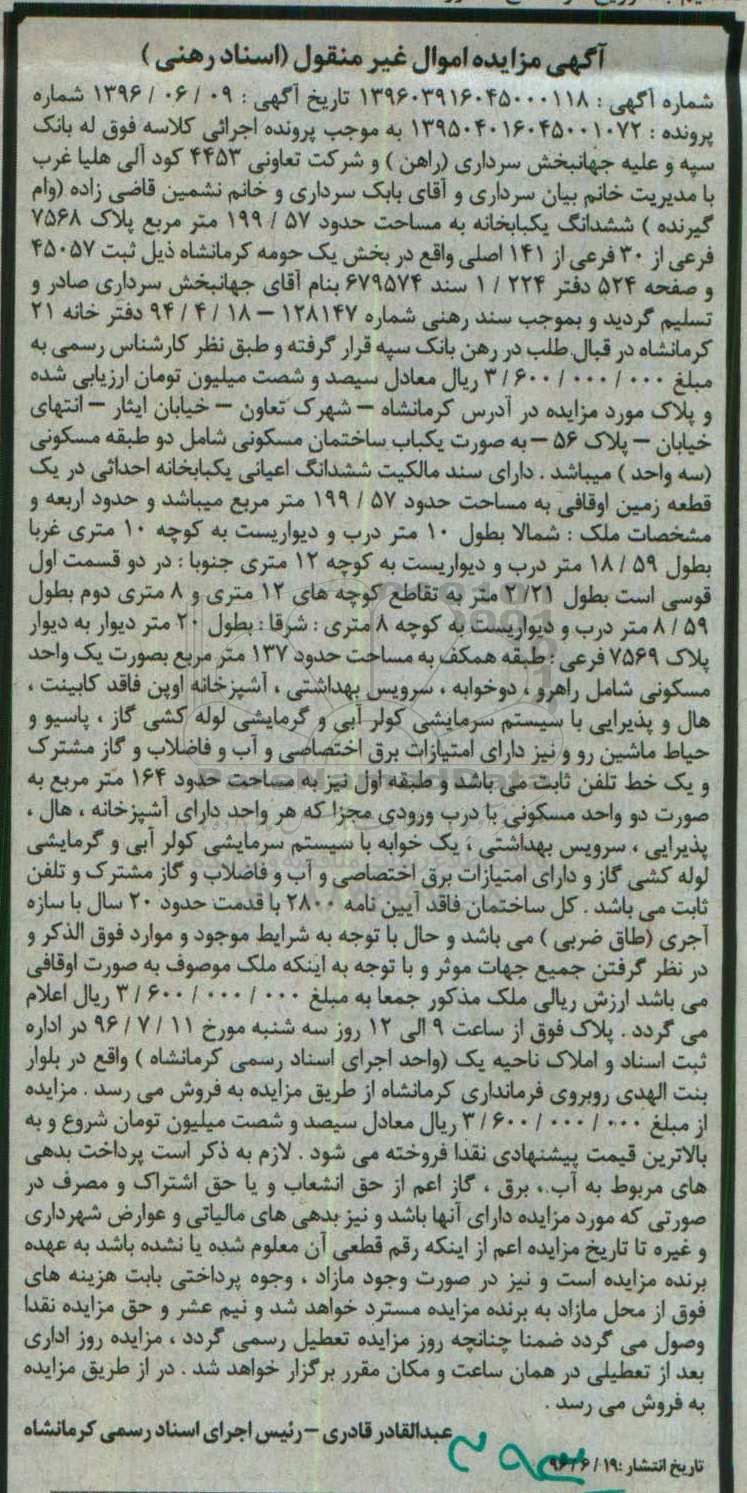 آگهی مزایده اموال غیر منقول (اسناد رهنی)
شماره آگهی : ۱۳۹۶۰۳۹۱۶۰۴۵۰۰۰۱۱۸ تاریخ آگهی : ۰۹ / ۰۶ / ۱۳۹۶ شماره
پرونده : ۱۳۹۵۰۴۰۱۶۰۴۵۰۰۱۰۷۲ به موجب پرونده اجرائی کلاسه فوق له بانک
سپه و علیه جهانبخش سرداری (راهن ) و شرکت تعاونی ۴۴۵۳ کود آلی هلیا غرب
با مدیریت خانم بیان سرداری و آقای بابک سرداری و خانم نشمین قاضی زاده (وام
گیرنده ) ششدانگ یکبابخانه به مساحت حدود ۵۷ / ۱۹۹ متر مربع پلاک ۷۵۶۸
فرعی از ۳۰ فرعی از ۱۴۱ اصلی واقع در بخش یک حومه کرمانشاه ذیل ثبت ۴۵۰۵۷
و صفحه ۵۲۴ دفتر ۲۲۴ / ۱ سند ۶۷۹۵۷۴ بنام آقای جهانبخش سرداری صادر و
تسلیم گردید و بموجب سند رهنی شماره ۱۲۸۱۴۷ – ۱۸ / ۴ / ۹۴ دفتر خانه ۲۱
کرمانشاه در قبال طلب در رهن بانک سپه قرار گرفته و طبق نظر کارشناس رسمی به
مبلغ ۰۰۰ / ۰۰۰ / ۶۰۰ / ۳ ریال معادل سیصد و شصت میلیون تومان ارزیابی شده
و پلاک مورد مزایده در آدرس کرمانشاه – شهرک تعاون – خیابان ایثار – انتهای
خیابان – پلاک ۵۶ – به صورت یکباب ساختمان مسکونی شامل دو طبقه مسکونی
(سه واحد ) میباشد . دارای سند مالکیت ششدانگ اعیانی یکبابخانه احداثی در یک
قطعه زمین اوقافی به مساحت حدود ۵۷ / ۱۹۹ متر مربع میباشد و حدود اربعه و
مشخصات ملک : شمالا بطول ۱۰ متر درب و دیواریست به کوچه ۱۰ متری غربا
بطول ۵۹ / ۱۸ متر درب و دیواریست به کوچه ۱۲ متری جنوبا : در دو قسمت اول
قوسی است بطول ۲/۲۱ متر به تقاطع کوچه های ۱۲ متری و ۸ متری دوم بطول
۵۹ / ۸ متر درب و دیواریست به کوچه ۸ متری : شرقا : بطول ۲۰ متر دیوار به دیوار
پلاک ۷۵۶۹ فرعی : طبقه همکف به مساحت حدود ۱۳۷ متر مربع بصورت یک واحد
مسکونی شامل راهرو ، دوخوابه ، سرویس بهداشتی ، آشپزخانه اوپن فاقد کابینت ،
هال و پذیرایی با سیستم سرمایشی کولر آبی و گرمایشی لوله کشی گاز ، پاسیو و
حیاط ماشین رو و نیز دارای امتیازات برق اختصاصی و آب و فاضلاب و گاز مشترک
و یک خط تلفن ثابت می باشد و طبقه اول نیز به مساحت حدود ۱۶۴ متر مربع به
صورت دو واحد مسکونی با درب ورودی مجزا که هر واحد دارای آشپزخانه ، هال ،
پذیرایی ، سرویس بهداشتی ، یک خوابه با سیستم سرمایشی کولر آبی و گرمایشی
لوله کشی گاز و دارای امتیازات برق اختصاصی و آب و فاضلاب و گاز مشترک و تلفن
ثابت می باشد . کل ساختمان فاقد آیین نامه ۲۸۰۰ با قدمت حدود ۲۰ سال با سازه
آجری (طاق ضربی ) می باشد و حال با توجه به شرایط موجود و موارد فوق الذکر و
در نظر گرفتن جمیع جهات موثر و با توجه به اینکه ملک موصوف به صورت اوقافی
می باشد ارزش ریالی ملک مذکور جمعا به مبلغ ۰۰۰ / ۰۰۰ / ۶۰۰ / ۳ ریال اعلام
می گردد . پلاک فوق از ساعت ۹ الی ۱۲ روز سه شنبه مورخ ۱۱ / ۷ / ۹۶ در اداره
ثبت اسناد و املاک ناحیه یک (واحد اجرای اسناد رسمی کرمانشاه ) واقع در بلوار
بنت الهدی روبروی فرمانداری کرمانشاه از طریق مزایده به فروش می رسد . مزایده
از مبلغ ۰۰۰ / ۰۰۰ / ۶۰۰ / ۳ ریال معادل سیصد و شصت میلیون تومان شروع و به
بالاترین قیمت پیشنهادی نقدا فروخته می شود . لازم به ذکر است پرداخت بدهی
های مربوط به آب ، برق ، گاز اعم از حق انشعاب و یا حق اشتراک و مصرف در
صورتی که مورد مزایده دارای آنها باشد و نیز بدهی های مالیاتی و عوارض شهرداری
و غیره تا تاریخ مزایده اعم از اینکه رقم قطعی آن معلوم شده یا نشده باشد به عهده
برنده مزایده است و نیز در صورت وجود مازاد ، وجوه پرداختی بابت هزینه های
فوق از محل مازاد به برنده مزایده مسترد خواهد شد و نیم عشر و حق مزایده نقدا
وصول می گردد ضمنا چنانچه روز مزایده تعطیل رسمی گردد ، مزایده روز اداری
بعد از تعطیلی در همان ساعت و مکان مقرر برگزار خواهد شد . در از طریق مزایده
به فروش می رسد .
عبدالقادر قادری – رئیس اجرای اسناد رسمی کرمانشاه
تاریخ انتشار :۱۹ / ۶ / ۹۶